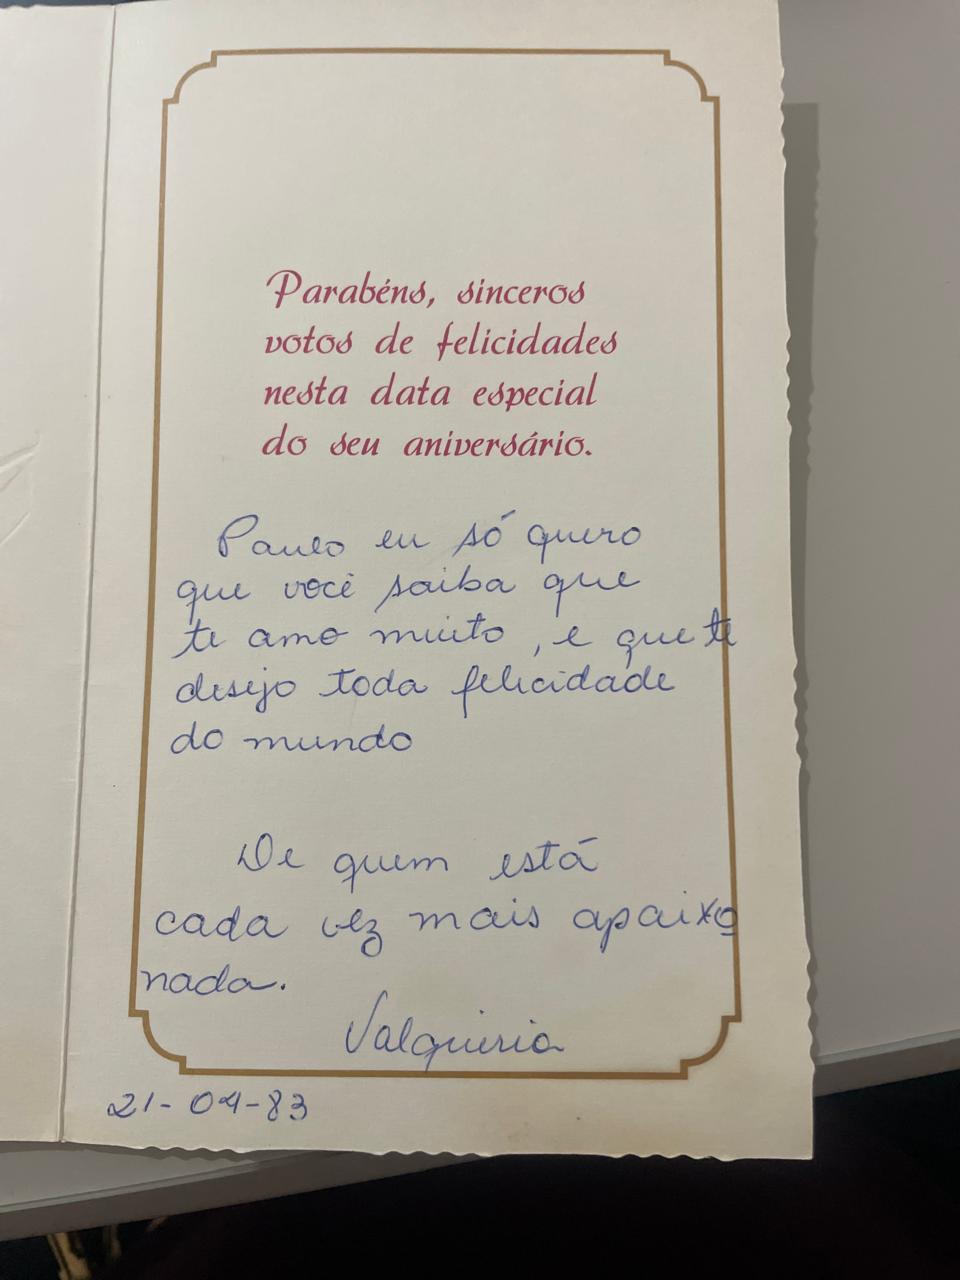 Parabéns, sinceros
votos de felicidades
nesta data especial
do seu aniversário.
Paulo eu só quero
que você saiba que
te amo muito, e que te
desejo toda felicidade
do mundo
De quem está
cada vez mais apaixo
nada.
Valquiria
21-04-83